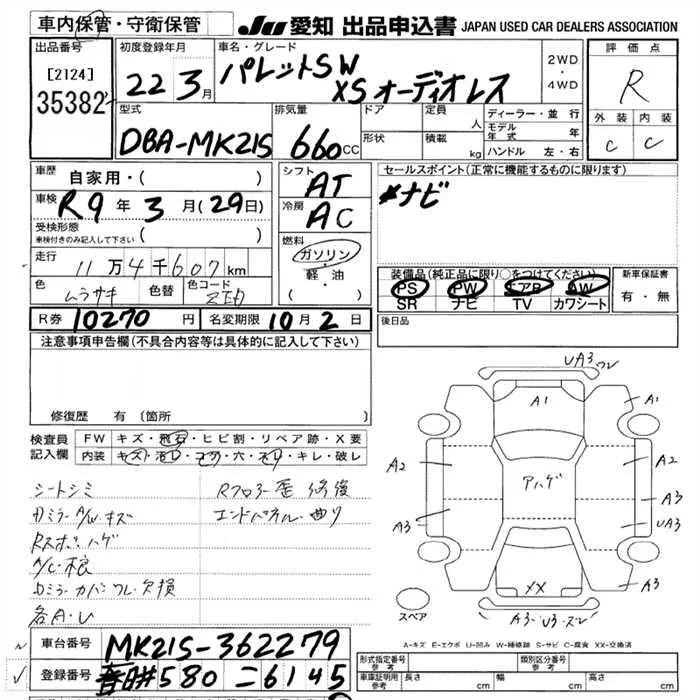 車内保管・守衛保管
JU 愛知 出品申込書 JAPAN USED CAR DEALERS ASSOCIATION
出品番号
[2124]
35382
初度登録年月
22 3月
車名・グレード
パレットSW
XS オーディオレス
2WD
・
4WD
評価点
R
外装 内装
C C
型式
DBA-MK21S
排気量
660cc
ドア
形状
定員
人
積載
kg
ディーラー・並行
モデル年式 年
ハンドル 左・右
車歴
自家用・( )
車検
R9年 3月(29日)
受検形態
車検付きのみ記入して下さい ( )
走行
11万4千607km
色
ムラサキ
色替
色コード
シフト
AT
冷房
AC
燃料
ガソリン
軽・油
( )
セールスポイント(正常に機能するものに限ります)
ナビ
装備品(純正品に限り○をつけてください)
PS PW エアB AW
SR ナビ TV カワシート
新車保証書
有・無
後日品
R券 10270円
名変期限 10月2日
注意事項申告欄(不具合内容等は具体的に記入して下さい)
修復歴 有 〔箇所
検査員記入欄
FW キズ・飛石・ヒビ割・リペア跡・X要
内装 キズ・汚レ・コゲ・穴・スリ・キレ・破レ
シートシミ
Rフロアー歪 修復
カミラーA/W.キズ
エンドパネル・曲り
ハゲ
カミラーカバーワレ・欠損
各A・U
UA3 ワレ
A1
A1
A2
A2
アハゲ
A3
A3
UA3
XX
A3
A3・U3・ズレ
スペア
A-キズ E-エクボ U-凹み W-補修跡 S-サビ C-腐食 XX-交換済
車台番号
MK21S-362279
登録番号
春日井580 ニ6145
形式指定番号
参考
類別区分番号
参考
車庫証明用
参考
長さ cm
幅 cm
高さ cm